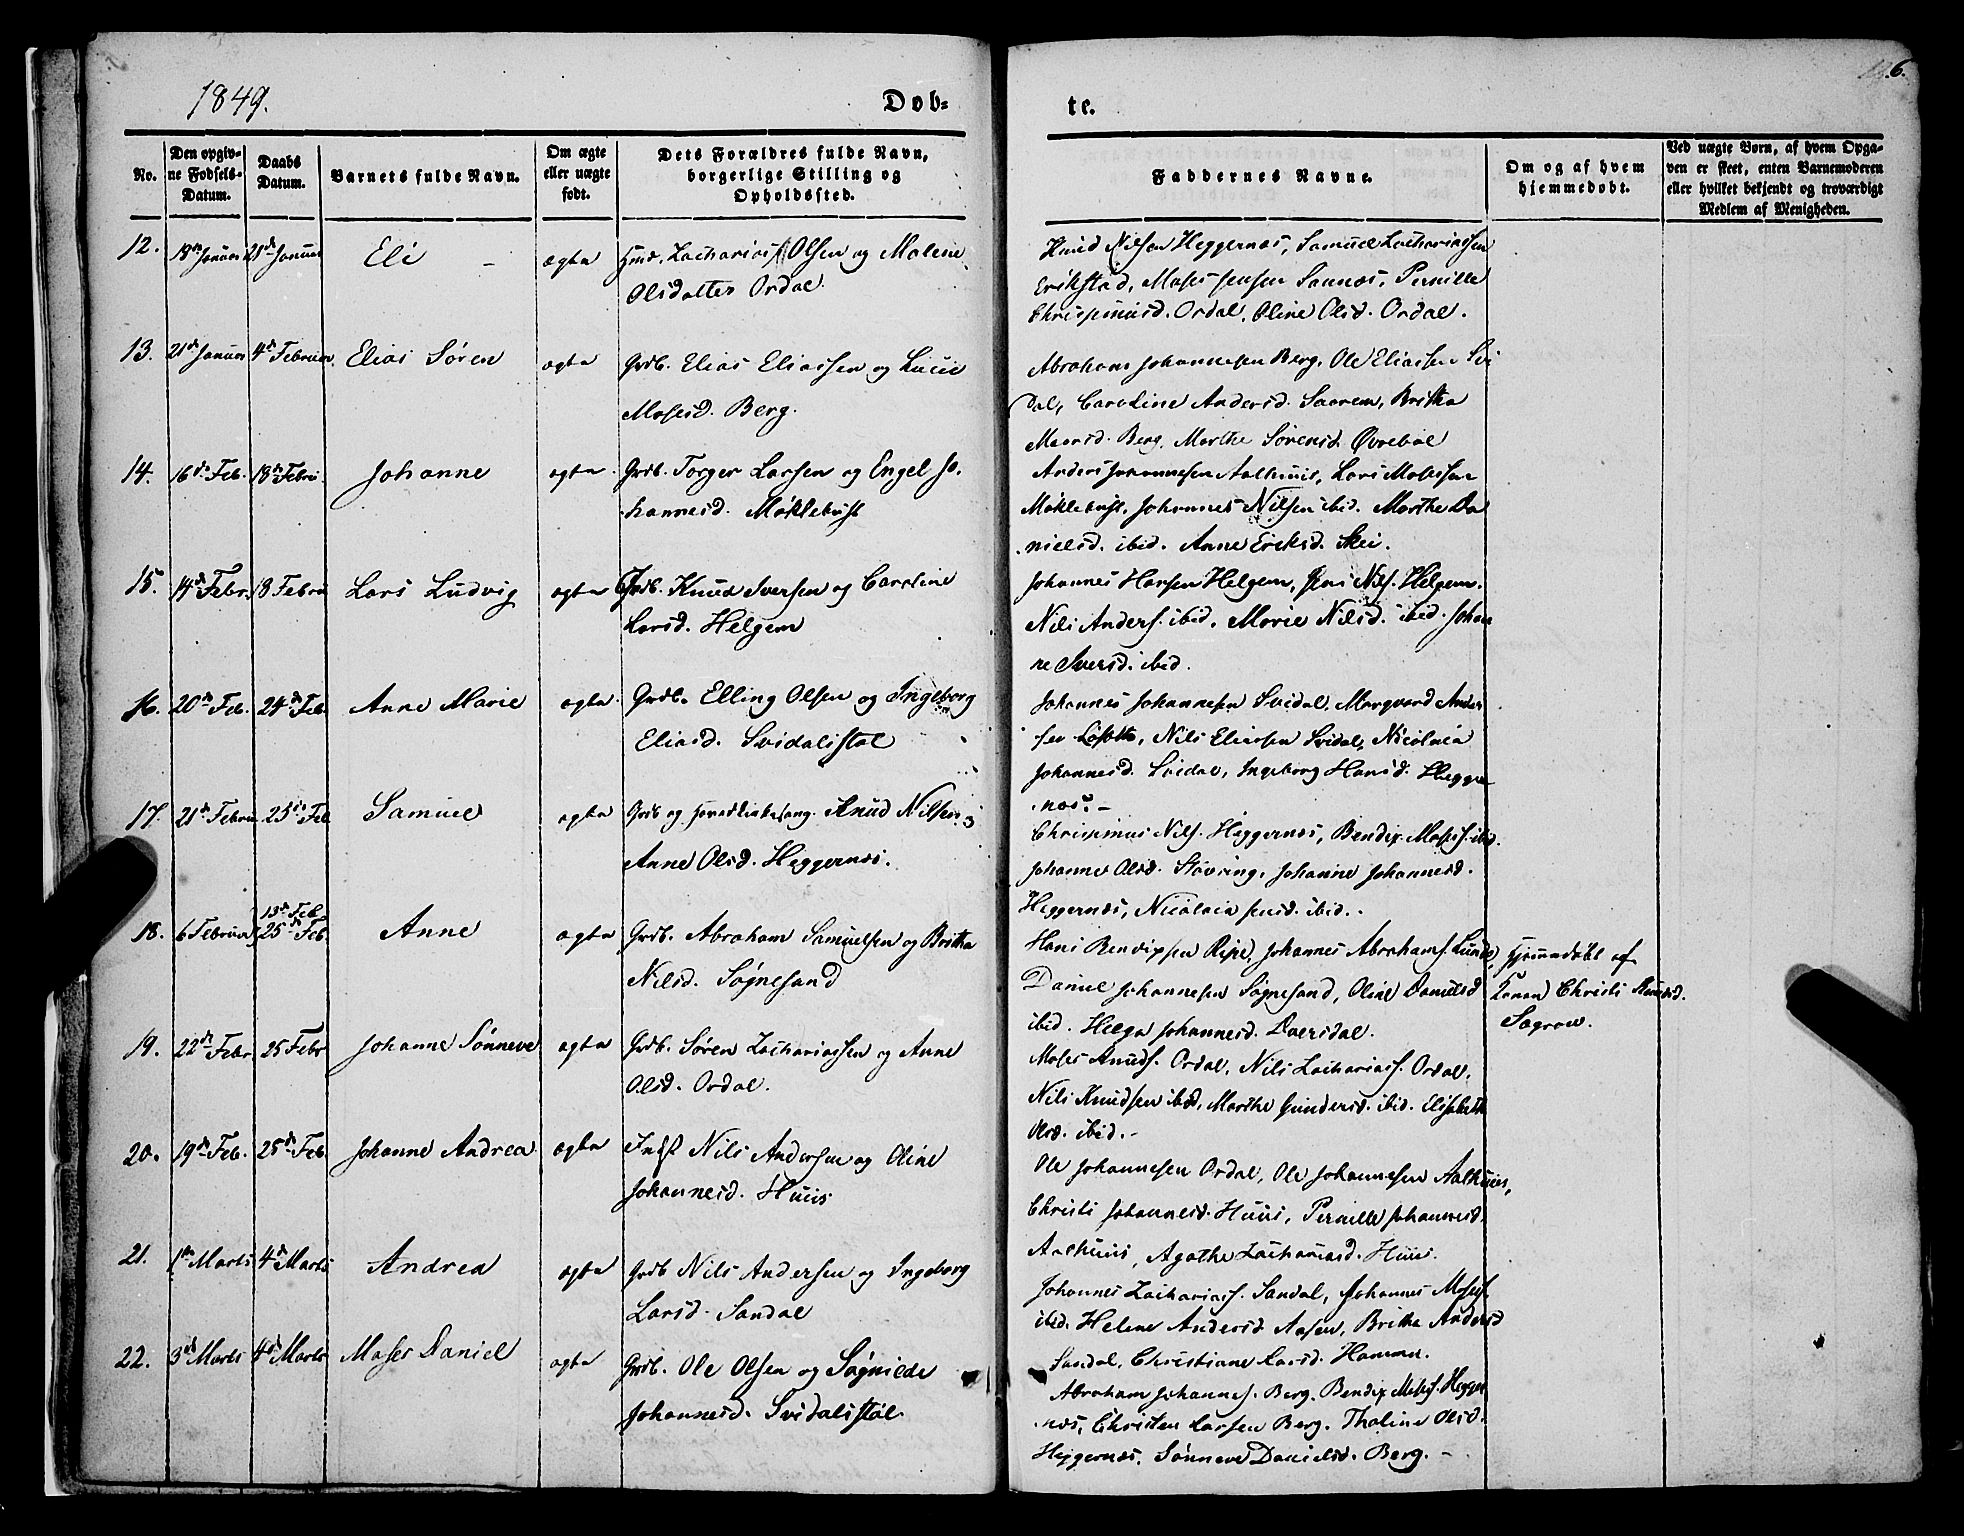 1849.
Døb=
te.
6.
No.
Den opgiv-
ne Fødsels-
Datum.
Daabs
Datum.
Barnets fulde Navn.
Om ægte
eller uægte
født.
Dets Forældres fulde Navn,
borgerlige Stilling og
Opholdssted.
Faddernes Navne.
Om og af hvem
hjemmedøbt.
Ved uægte Børn, af hvem Opga-
ven er skeet, enten Barnemoderen
eller hvilket bekjendt og troværdigt
Medlem af Menigheden.
12. 21de Januar Eli ægte Zacharias Olsen og Malene
Olsdatter Ordal.
Knud Nilsen Heggernæs, Samuel Zachariassen
Erikstad, Moses Jensen Sannæs, Pernille
Chrispinusd. Ordal, Oline Olsd. Ordal.
13. 21de Januar 4de Februar Elias Søren ægte Grdb. Elias Eliassen og Lucie
Mosesd. Berg.
Abraham Johannesen Berg, Ole Eliassen Svi
dal, Caroline Andersd. Saarem, Britha
Mosesd. Berg, Marthe Sørensd. Øvrebøe
14. 16de Feb. 18de Febru. Johanne ægte Grdb. Torger Larsen og Engel Jo-
hannesd. Møklebust
Anders Johannesen Aalhuus, Lars Mosessen
Møklebust, Johannes Nilsen ibid. Marthe Da
nielsd. ibid. Anne Eriksd. Skei.
15. 14de Febr. 18 Febru Lars Ludvig ægte Grdb. Knud Iversen og Caroline
Larsd. Helgem
Johannes Hansen Helgem, Nils. Helgem.
Nils Anders. ibid. Marie Nilsd. ibid. Johan
ne Iversd. ibid.
16. 20de Feb. 24de Feb. Anne Marie ægte Grdb. Elling Olsen og Ingeborg
Eliasd. Svidalstøl
Johannes Johannesen Svidal, Marqvard Ander
sen, Nils Eliassen Svidal, Nicolaia
Johannesd. Svidal, Ingeborg Hansd. Hegger
næs. -
17. 21de Februar 25de Feb Samuel ægte Grdb og Knud Nilsen og
Anne Olsd. Heggernæs.
Chrispinus Nils. Heggernæs, Bendix Moses. ibid.
Johanne Olsd. Støvring, Johanne Johannesd.
Heggernæs, Nicolaia Jensd. ibid.
18. 6 Februar 13de Feb
25de Feb. Anne ægte Grdb. Abraham Samuelsen og Britha
Nilsd. Søgnesand
Hans Bendixsen Ripe, Johannes Abrahams. Lunde,
Daniel Johannesen Søgnesand, Oline Danielsd
ibid. Helga Johannesd. Dvergsdal.
Hjemmedøbt af
Konen Christi
19. 22de Febr 25 Febr Johanne Sønneve ægte Grdb. Søren Zachariassen og Anne
Olsd. Ordal.
Moses Knuds. Ordal, Nils Zacharias. Ordal,
Nils Knudsen ibid, Marthe Gundersd. ibid. Elisabeth
Olsd. ibid.-
20. 19de Feb. 25de Feb Johanne Andrea ægte Indst Nils Andersen og Oline
Johannesd. Huus
Ole Johannesen Ordal, Ole Johannesen Aalhuus,
Christi Johannesd. Huus, Pernille Johannesd.
Aalhuus, Agathe Zachariasd. Huus.
21. 1ste Marts 4de Marts Andrea ægte Grdb Nils Andersen og Ingeborg
Larsd. Sandal
Johannes Zacharias. Sandal, Johannes Moses.
ibid. Helene Andersd. Aasen, Brithe Andersd
Sandal, Christiane Larsd. Hammer.
22. 3die Marts 4de Marts Moses Daniel ægte Grdb. Ole Olsen og Søgnilde
Johannesd. Svidalstøl.
Abraham Johannes. Berg. Bendix Moses. Hegger
næs, Christen Larsen Berg. Thaline Olsd.
Heggernæs, Sønneve Danielsd. Berg. -